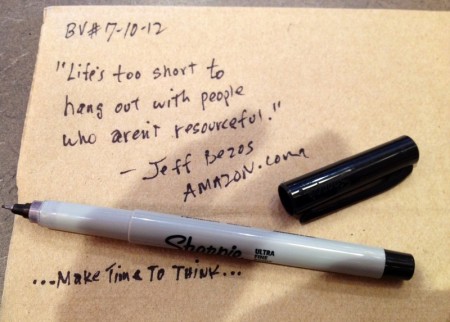 BV# 7-10-12
"Life's too short to
hang out with people
who aren't resourceful."
- Jeff Bezos
AMAZON.com
Sharpie
ULTRA
FINE
...Make Time To Think...